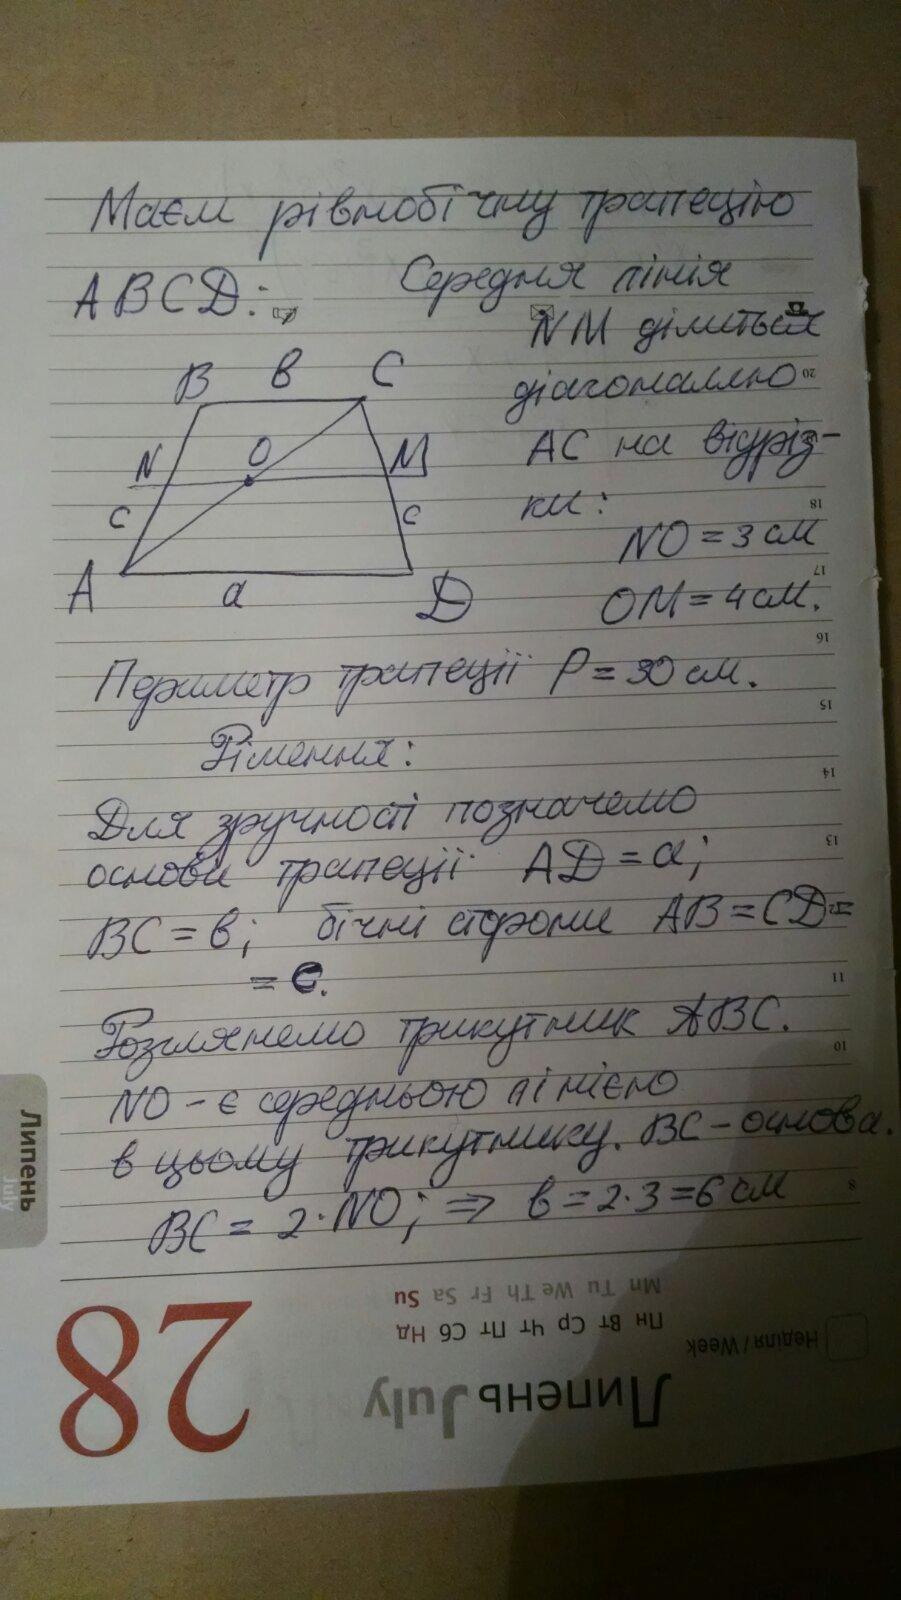 Маєм рівнобічну трапецію
ABCD:
Середня лінія
NM ділиться
діагоналлю
AC на відріз-
ки:
NO = 3 см
OM = 4 см.
B в C
N O M
c c
A a D
Периметр трапеції P = 30 см.
Рішення:
Для зручності позначемо
основи трапеції AD = a;
BC = в; бічні сторони AB = CD =
= c.
Розглянемо трикутник ABC.
NO - є середньою лінією
в цьому трикутнику. BC - основа.
BC = 2·NO; => в = 2·3 = 6 см
20
18
17
16
15
14
13
11
10
8
Липень
July
28
Mn Tu We Th Fr Sa Su
Пн Вт Ср Чт Пт Сб Нд
Неділя / Week
Липень July